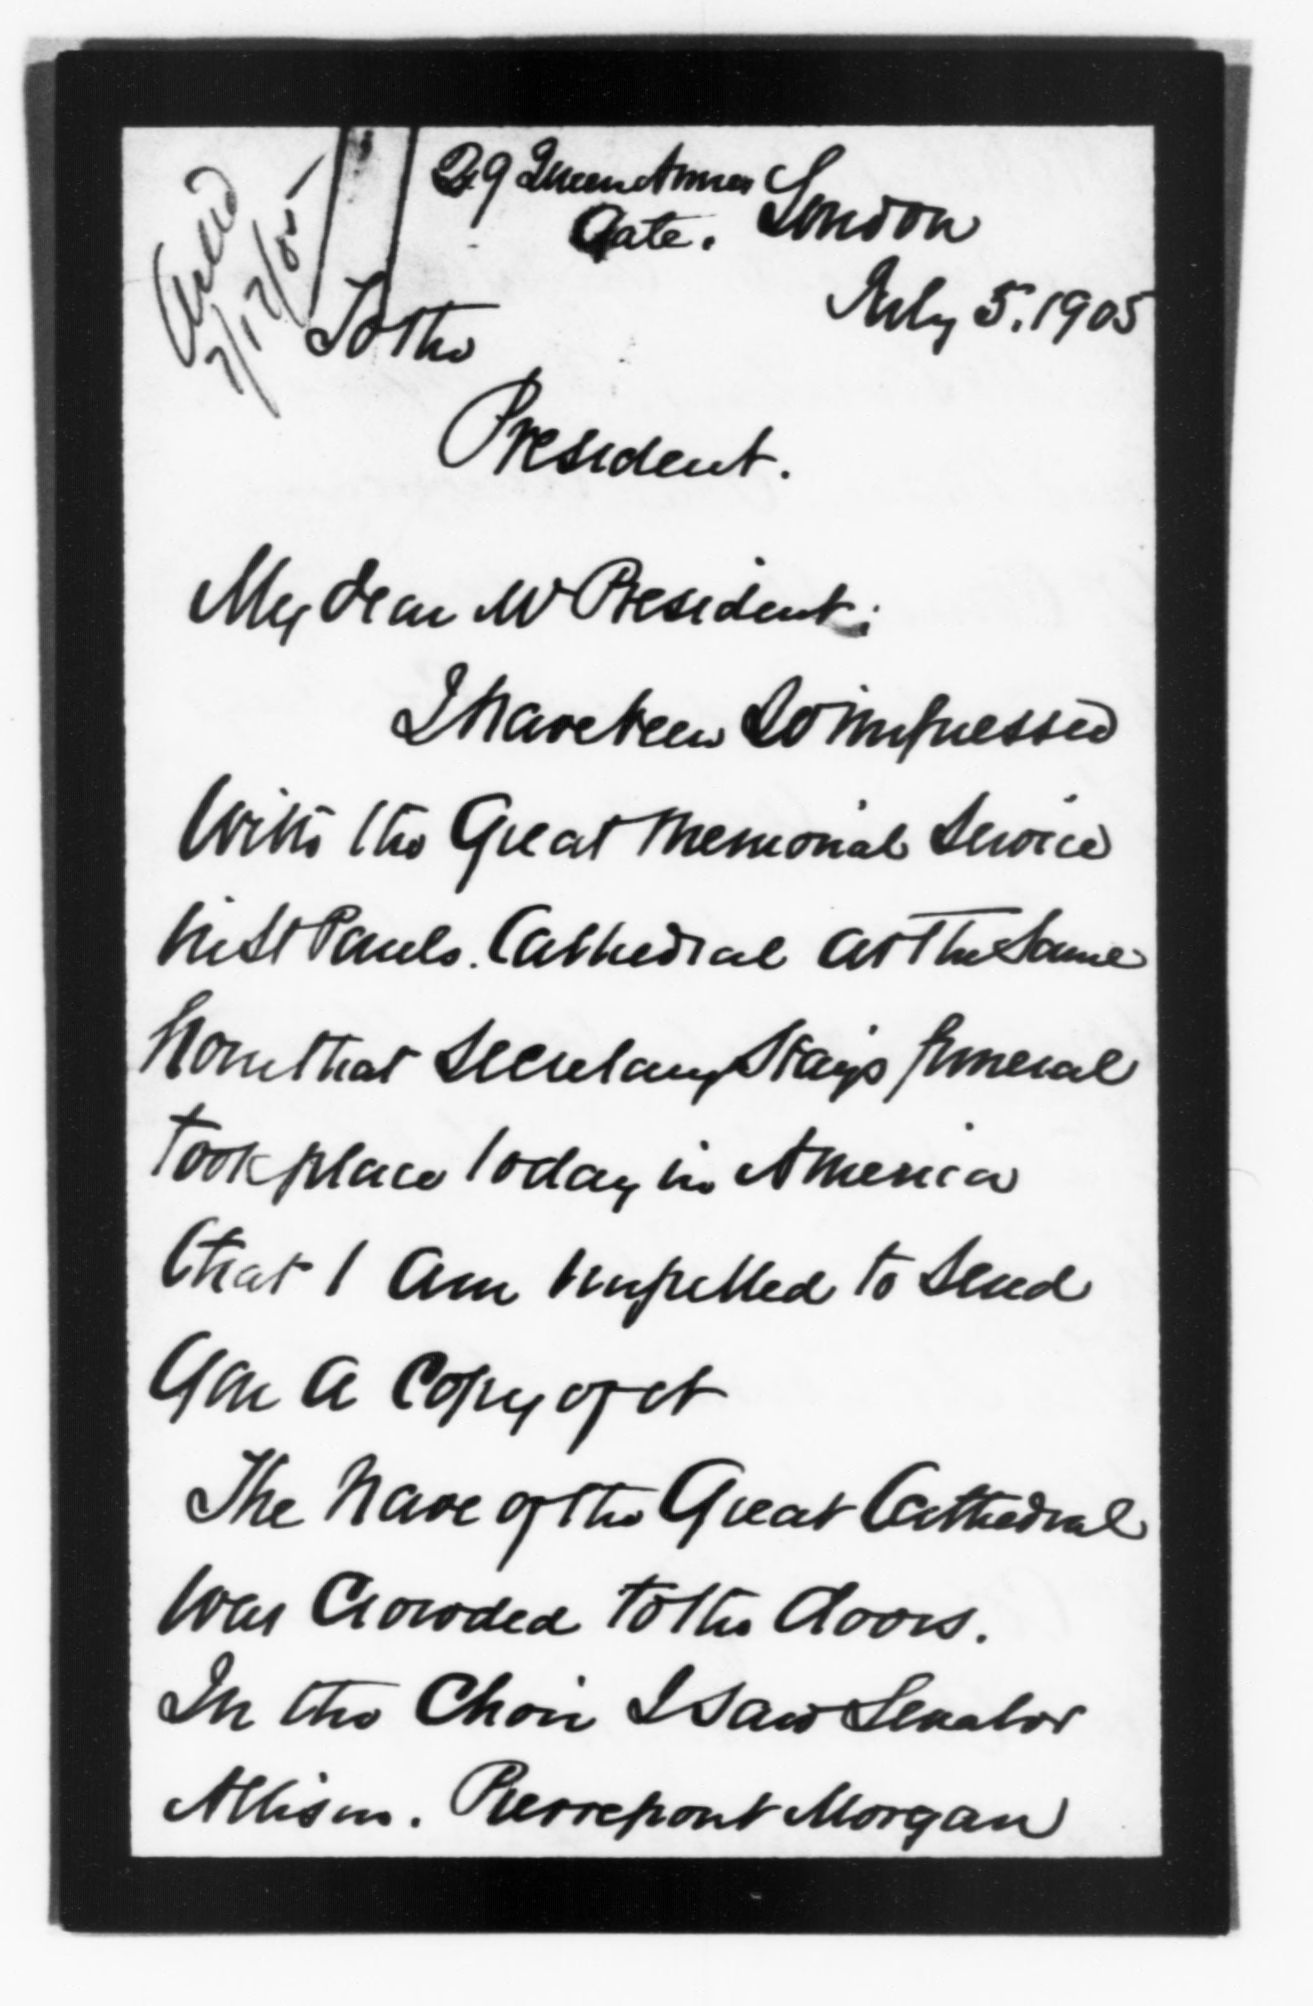 Ackd
7/17/05
29 Queen Annes
Gate. London
July 5. 1905
To the
President.
My dear Mr President:
I have been so impressed
with the Great Memorial Service
in St Pauls. Cathedral at the same
hour that Secretary Hays funeral
took place today in America
that I am impelled to send
you a copy of it
The nave of the Great Cathedral
was crowded to the doors.
In the Choir I saw Senator
Allison. Pierrepont Morgan